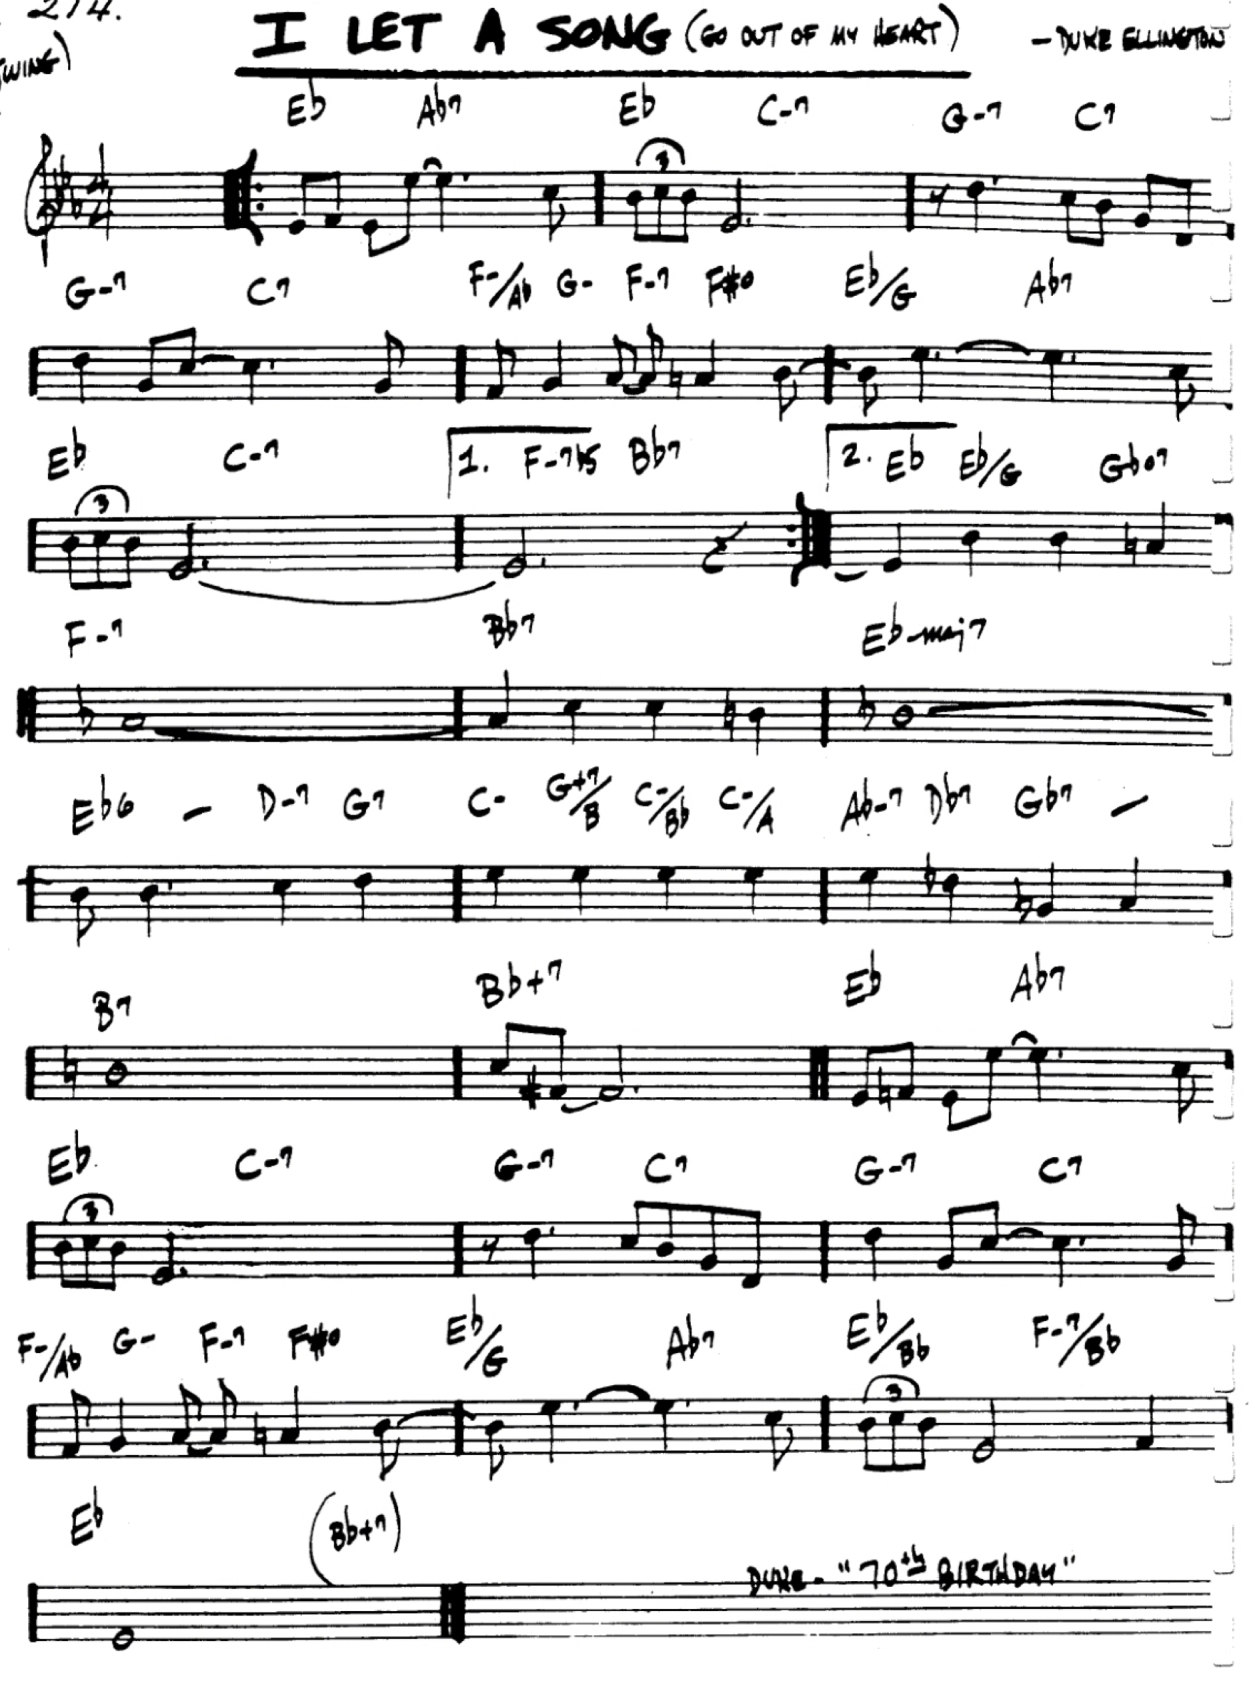 274.
I LET A SONG (GO OUT OF MY HEART) - DUKE ELLINGTON
SWING)
Eb Ab7 Eb C-7 G-7 C7
3
G-7 C7 F-/Ab G- F-7 F#o Eb/G Ab7
Eb C-7 1. F-7b5 Bb7 2. Eb Eb/G Gbo7
3
F-7 Bb7 Eb maj7
Eb6 - D-7 G7 C- G+7/B C-/Bb C-/A Ab-7 Db7 Gb7 -
B7 Bb+7 Eb Ab7
Eb C-7 G-7 C7 G-7 C7
3
F-/Ab G- F-7 F#o Eb/G Ab7 Eb/Bb F-7/Bb
3
Eb (Bb+7)
DUKE - "70th BIRTHDAY"